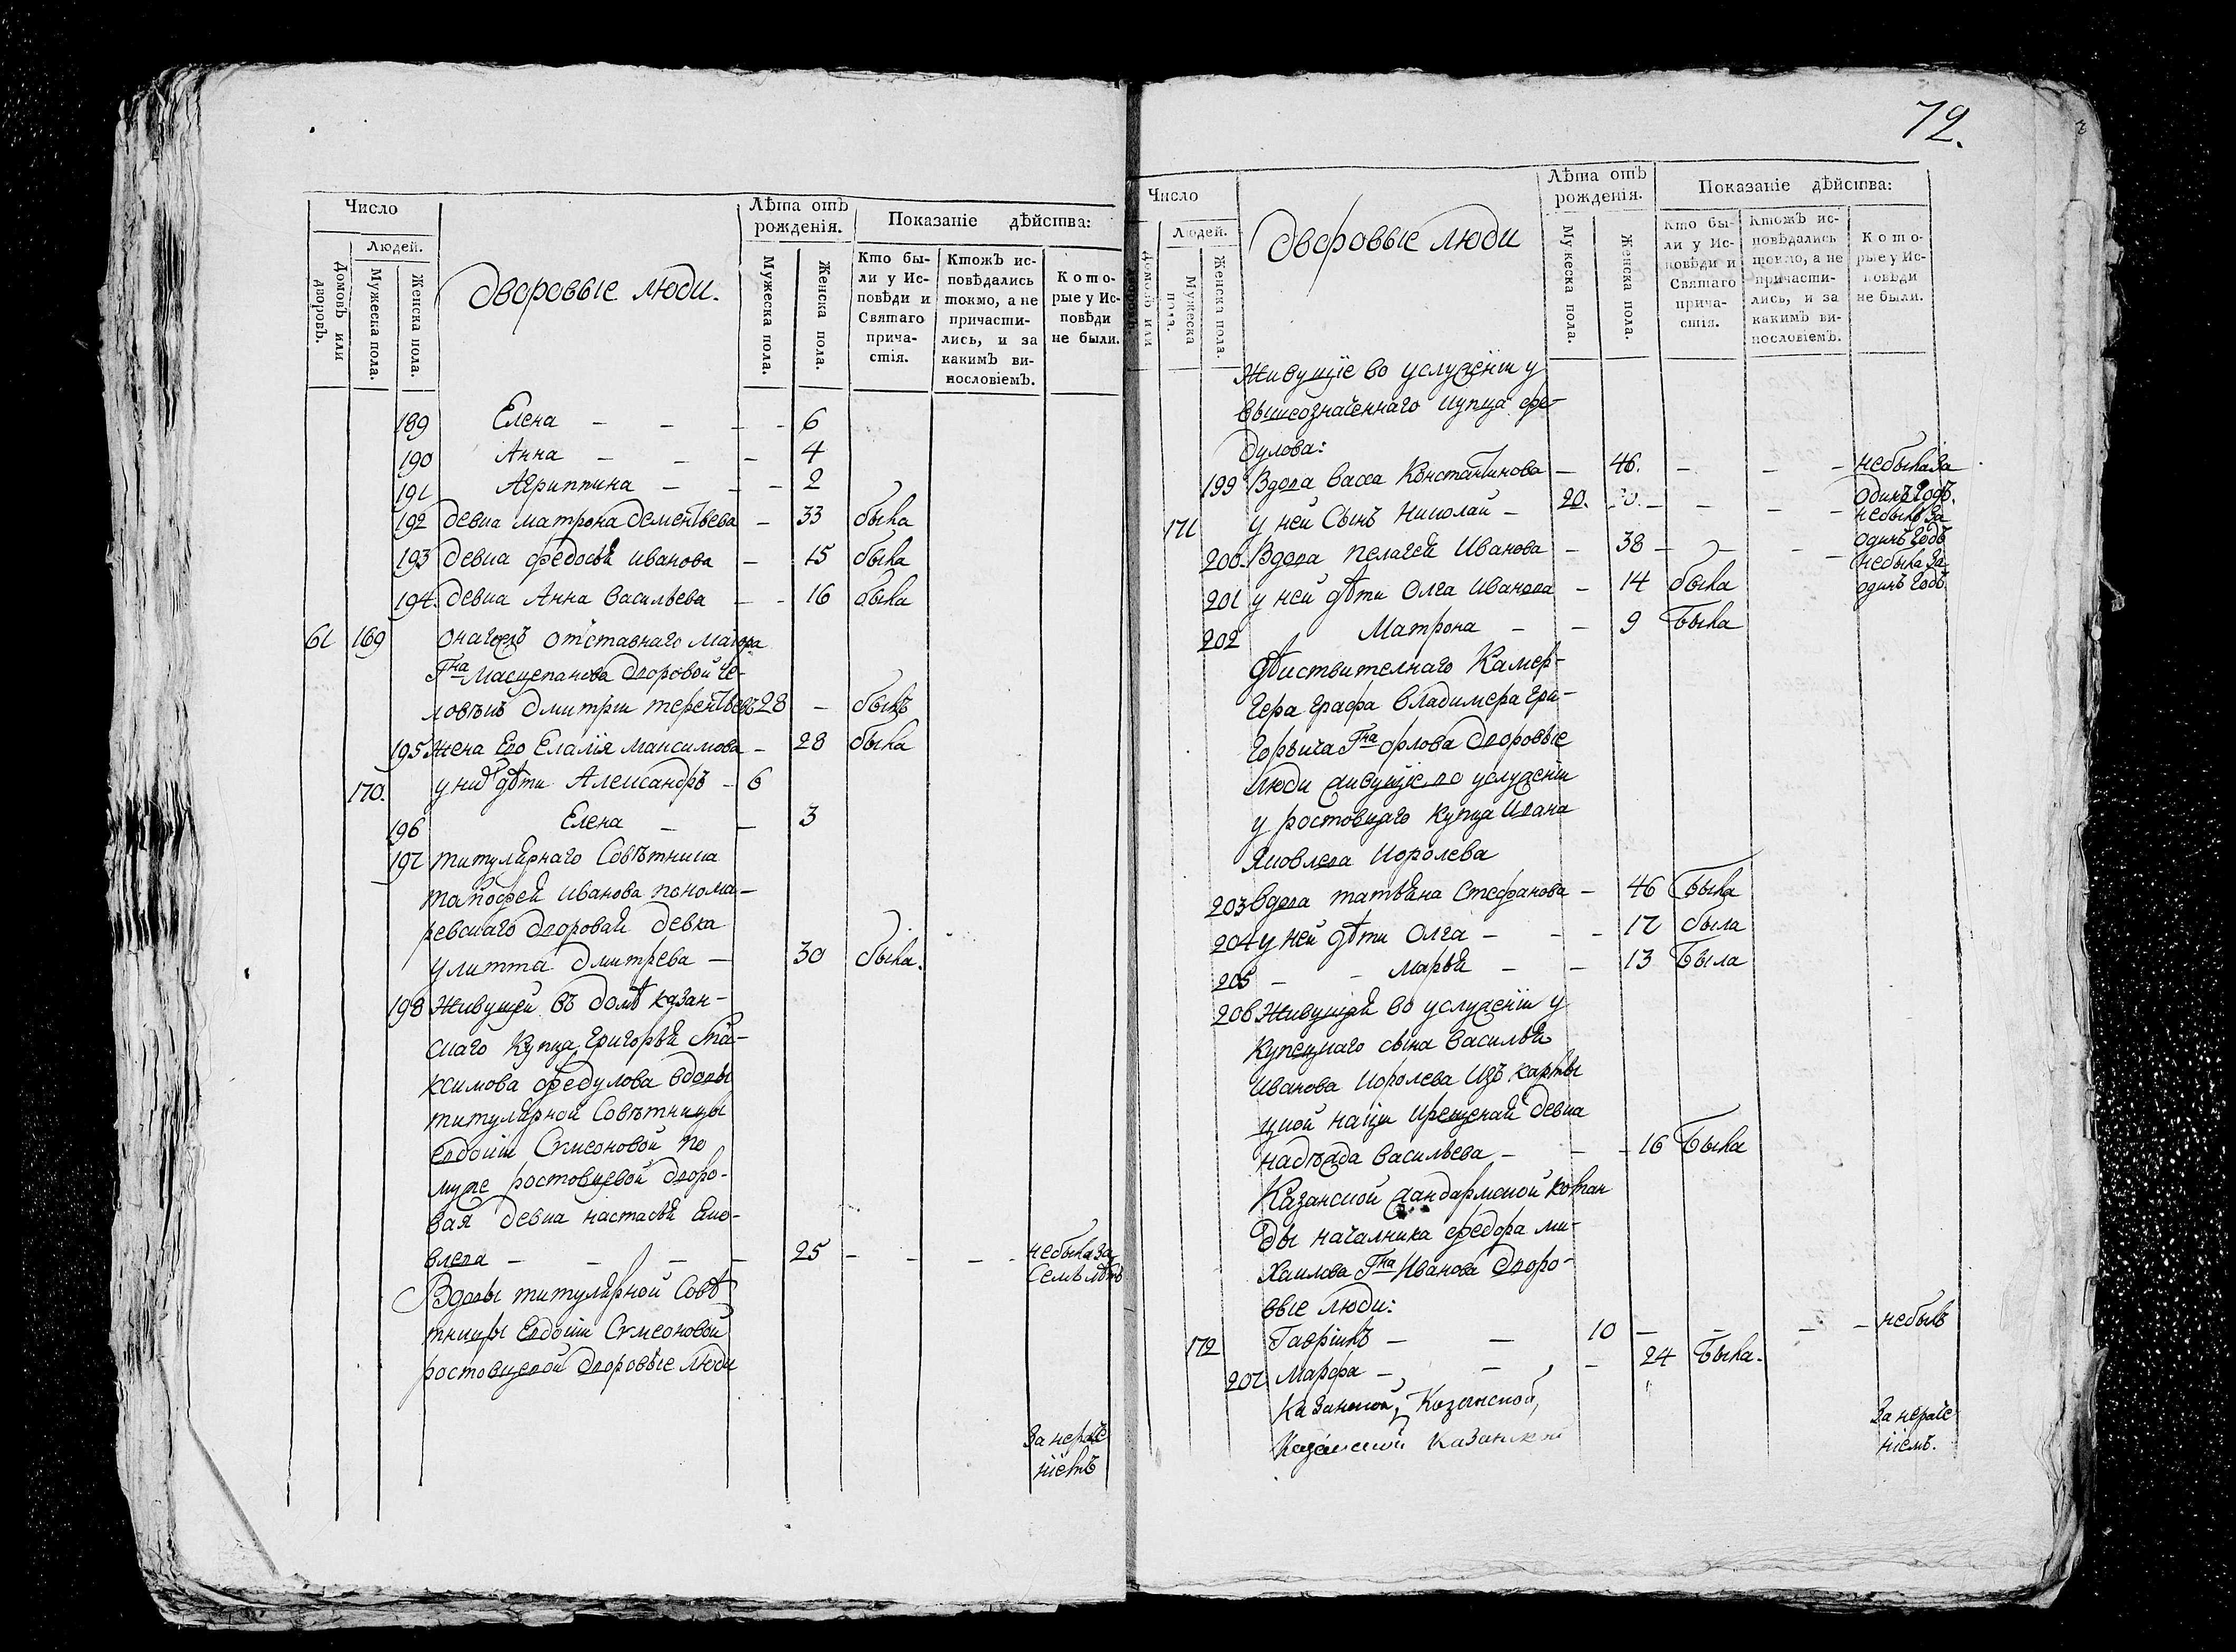 Число
Людей.
Домовъ или дворовъ.
Мужеска пола.
Женска пола.
Дворовые люди.
Лѣта отъ рожденія.
Мужеска пола.
Женска пола.
Показаніе дѣйства:
Кто бы-
ли у Ис-
повѣди и
Святаго
прича-
стія.
Ктожъ ис-
повѣдались
токмо, а не
причасти-
лись, и за
какимъ ви-
нословіемъ.
Кото-
рые у Ис-
повѣди
не были.
189 Елена - - - - 6
190 Анна - - - 4
191 Агриппина - - - 2
192 девка матрона дементьева - 33 была
193 девка федосья иванова - 15 была
194. девка Анна васильева - - 16 была
61 169 отставнаго маіора
Гна дворовой че-
ловѣкъ дмитрій терентьевъ 28 - былъ
195 жена Его Елалія максимова - 28 была
170. у них дѣти Александръ - 6
196 Елена - - 3
197 титулярнаго Совѣтника
иванова понома-
ревскаго дворовая девка
улитта дмитрева - 30 была.
198 Живущей въ домѣ казан-
скаго купца григорья ма-
ксимова федулова вдовы
титулярной Совѣтницы
евдокіи Симеоновой по
муже ростовцевой дворо-
вая девка настасья Яко-
влева - - - - 25 - - - - небыла за
Семь лѣтъ
Вдовы титулярной Совѣ
тницы Евдокіи Симеоновой
ростовцевой дворовые люди
За нераче
ніемъ
72.
Число
Людей.
Домовъ или дворовъ.
Мужеска пола.
Женска пола.
Дворовые люди
Лѣта отъ рожденія.
Мужеска пола.
Женска пола.
Показаніе дѣйства:
Кто бы-
ли у Ис-
повѣди и
Святаго
прича-
стія.
Ктожъ ис-
повѣдались
токмо, а не
причасти-
лись, и за
какимъ ви-
нословіемъ.
Кото-
рые у Ис-
повѣди
не были.
Живущіе во услуженіи у
вышеозначеннаго купца фе-
дулова:
199 Вдова васса Константинова - 46. - - - небыла за
одинъ годъ.
171 у ней Сынъ Николай - 20. - - - - небылъ за
одинъ годъ
200. Вдова пелагея Иванова - 38 - - - - небыла за
одинъ годъ
201 у ней дѣти Олга Иванова - 14 была
202 Матрона - - 9 Была
Дѣиствителнаго Камер-
гера графа владимера гри-
горьича Гна орлова дворовые
люди живущіе во услуженіи
у ростовцаго купца Ивана
Яковлева Королева
203 вдова татьяна Стефанова - 46 Была
204 у ней дѣти Олга - - - 17 была
205 - - Марья - - 13 Была
206 Живущая во услуженіи у
купецкаго сына василья
иванова королева изъ
крещеная девка
надѣжда васильева - - - 16 Была
Казанской жандармской коман
ды началника федора ми-
хаилова Гна Иванова дворо-
вые люди:
172 Гавріилъ - - 10 - - - - небылъ
207 Марфа - - - 24 Была.
Казанской, Козанской,
Казанской Казанской
За нераче
ніемъ.